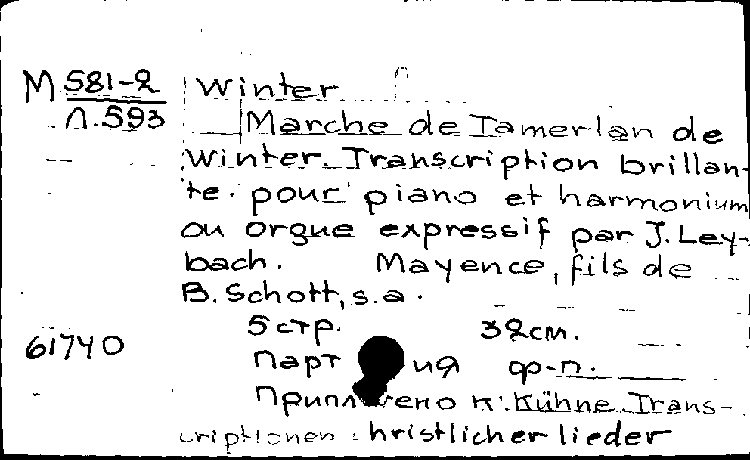 М 581-2 Winter
п.593 Marche de Tamerlan de
Winter. Transcription brillan-
te pour piano et harmonium
ou orgue expressif par J. Ley-
bach. Mayence, fils de
B. Schott, s.a.
5 стр. 32 см.
61740
ф-п.
к: Kühne. Trans-
criptionen christlicher lieder